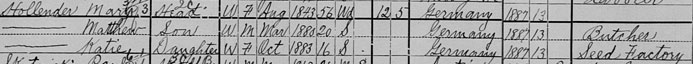 Hollender Mary 3 Head W F Aug 1843 56 Wd 12 5 Germany 1887 13
Matthew Son W M Mar 1880 20 S Germany 1887 13 Butcher
Katie Daughter W F Oct 1883 16 S Germany 1887 13 Seed Factory